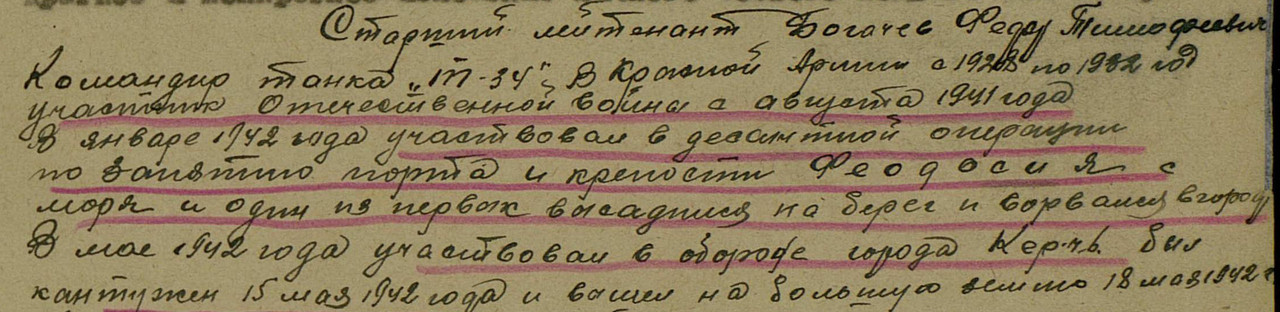 Старший лейтенант Богачев Федор Тимофеевич
Командир танка „Т-34", В Красной Армии с 1928 по 1932 год
участник Отечественной войны с августа 1941 года
В январе 1942 года участвовал в десантной операции
по занятию порта и крепости Феодосия с
моря и один из первых высадился на берег и ворвался в город
В мае 1942 года участвовал в обороне города Керчь. был
кантужен 15 мая 1942 года и вышел на большую землю 18 мая 1942 г